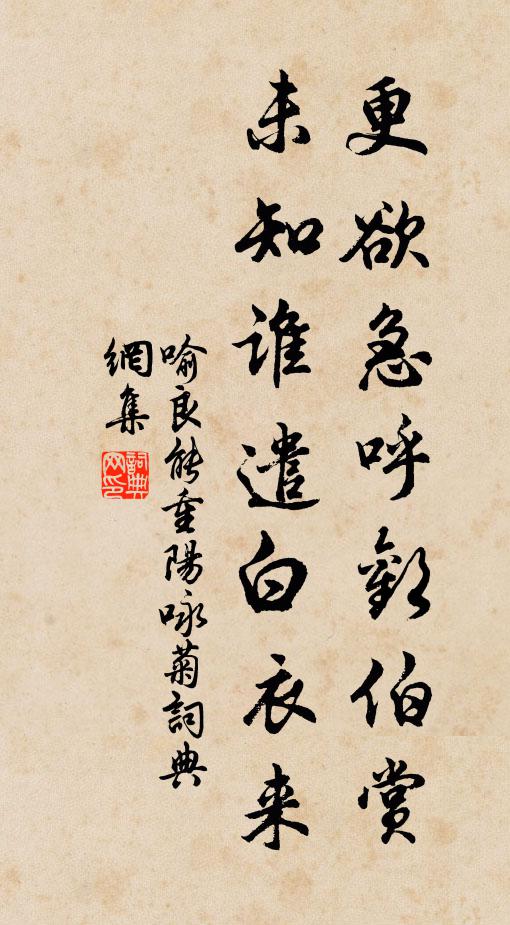 更欲急呼歡伯賞
未知誰遣白衣来
喻良能重陽咏菊詞典
網集
詞典
网印